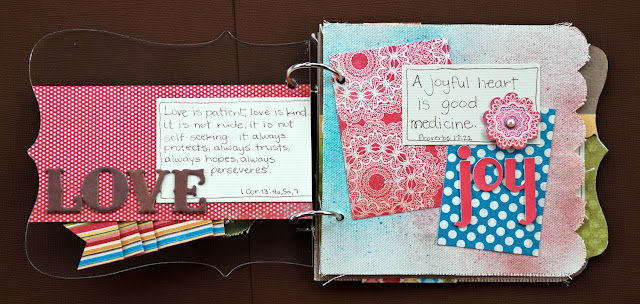 Love is patient, love is kind
it is not rude, it is not
self-seeking... it always
protects, always trusts,
always hopes, always
perseveres.
1 Cor. 13:4a,5a,7
LOVE
A joyful heart
is good
medicine.
Proverbs 17:22
joy